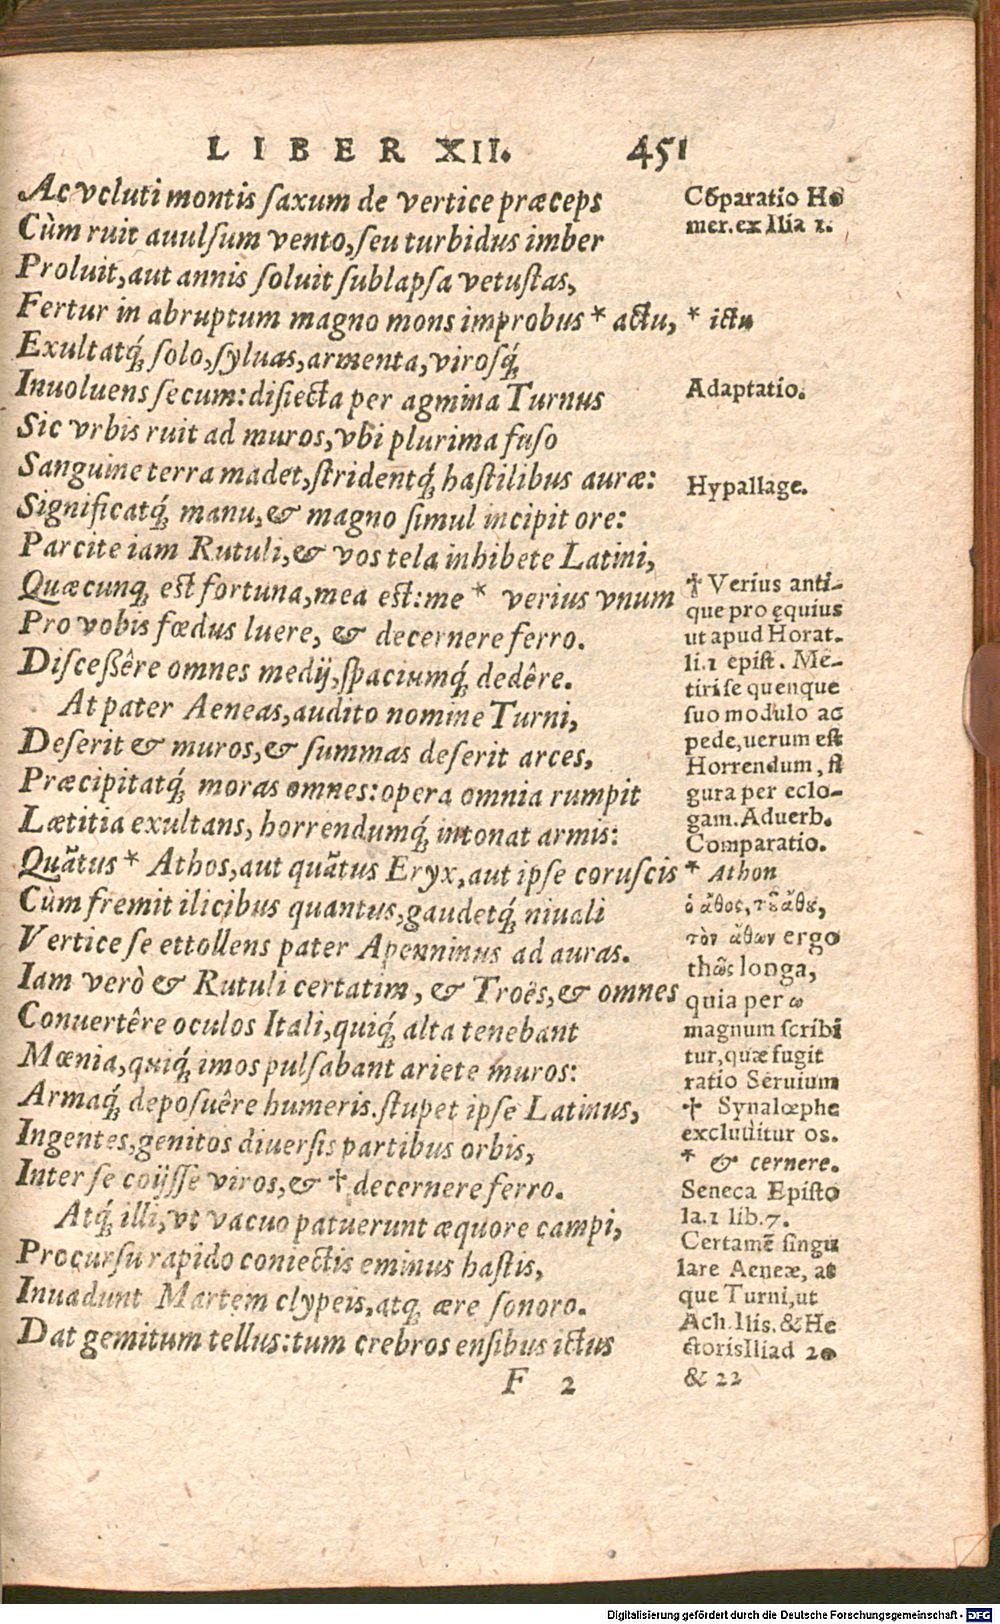 LIBER XII. 451
Ac veluti montis saxum de vertice præceps
Cùm ruit auulsum vento, seu turbidus imber
Proluit, aut annis soluit sublapsa vetustas,
Fertur in abruptum magno mons improbus * actu,
Exultatq́; solo, syluas, armenta, virosq́;
Inuoluens secum: disiecta per agmina Turnus
Sic vrbis ruit ad muros, vbi plurima fuso
Sanguine terra madet, stridentq́; hastilibus auræ:
Significatq́; manu, & magno simul incipit ore:
Parcite iam Rutuli, & vos tela inhibete Latini,
Quæcunq; est fortuna, mea est: me * verius vnum
Pro vobis fœdus luere, & decernere ferro.
Disceßêre omnes medij, spaciumq́; dedêre.
At pater Aeneas, audito nomine Turni,
Deserit & muros, & summas deserit arces,
Præcipitatq́; moras omnes: opera omnia rumpit
Lætitia exultans, horrendumq́; intonat armis:
Quãtus * Athos, aut quãtus Eryx, aut ipse coruscis
Cùm fremit ilicibus quantus, gaudetq́; niuali
Vertice se ettollens pater Apenninus ad auras.
Iam verò & Rutuli certatim, & Troës, & omnes
Conuertêre oculos Itali, quiq́; alta tenebant
Mœnia, quiq́; imos pulsabant ariete muros:
Armaq́; deposuêre humeris. stupet ipse Latinus,
Ingentes, genitos diuersis partibus orbis,
Inter se coijsse viros, & † decernere ferro.
Atq́; illi, vt vacuo patuerunt æquore campi,
Procursu rapido coniectis eminus hastis,
Inuadunt Martem clypeis, atq; ære sonoro.
Dat gemitum tellus: tum crebros ensibus ictus
F 2
Cõparatio Ho
mer. ex Ilia 1.
* ictu
Adaptatio.
Hypallage.
† Verius anti-
que pro ęquius
ut apud Horat.
li.1 epist. Me-
tiri se quenque
suo modulo ac
pede, uerum est
Horrendum, fi
gura per eclo-
gam. Aduerb.
Comparatio.
* Athon
ὁ ἄθος, τοῦ ἄθου,
τὸν ἄθων ergo
thῶς longa,
quia per ω
magnum scribi
tur, quæ fugit
ratio Seruium
† Synalœphe
excluditur os.
* & cernere.
Seneca Episto
la.1 lib.7.
Certamẽ singu
lare Aeneæ, at
que Turni, ut
Ach. Ilis. & He
ctoris Iliad 20
& 22
Digitalisierung gefördert durch die Deutsche Forschungsgemeinschaft - DFG